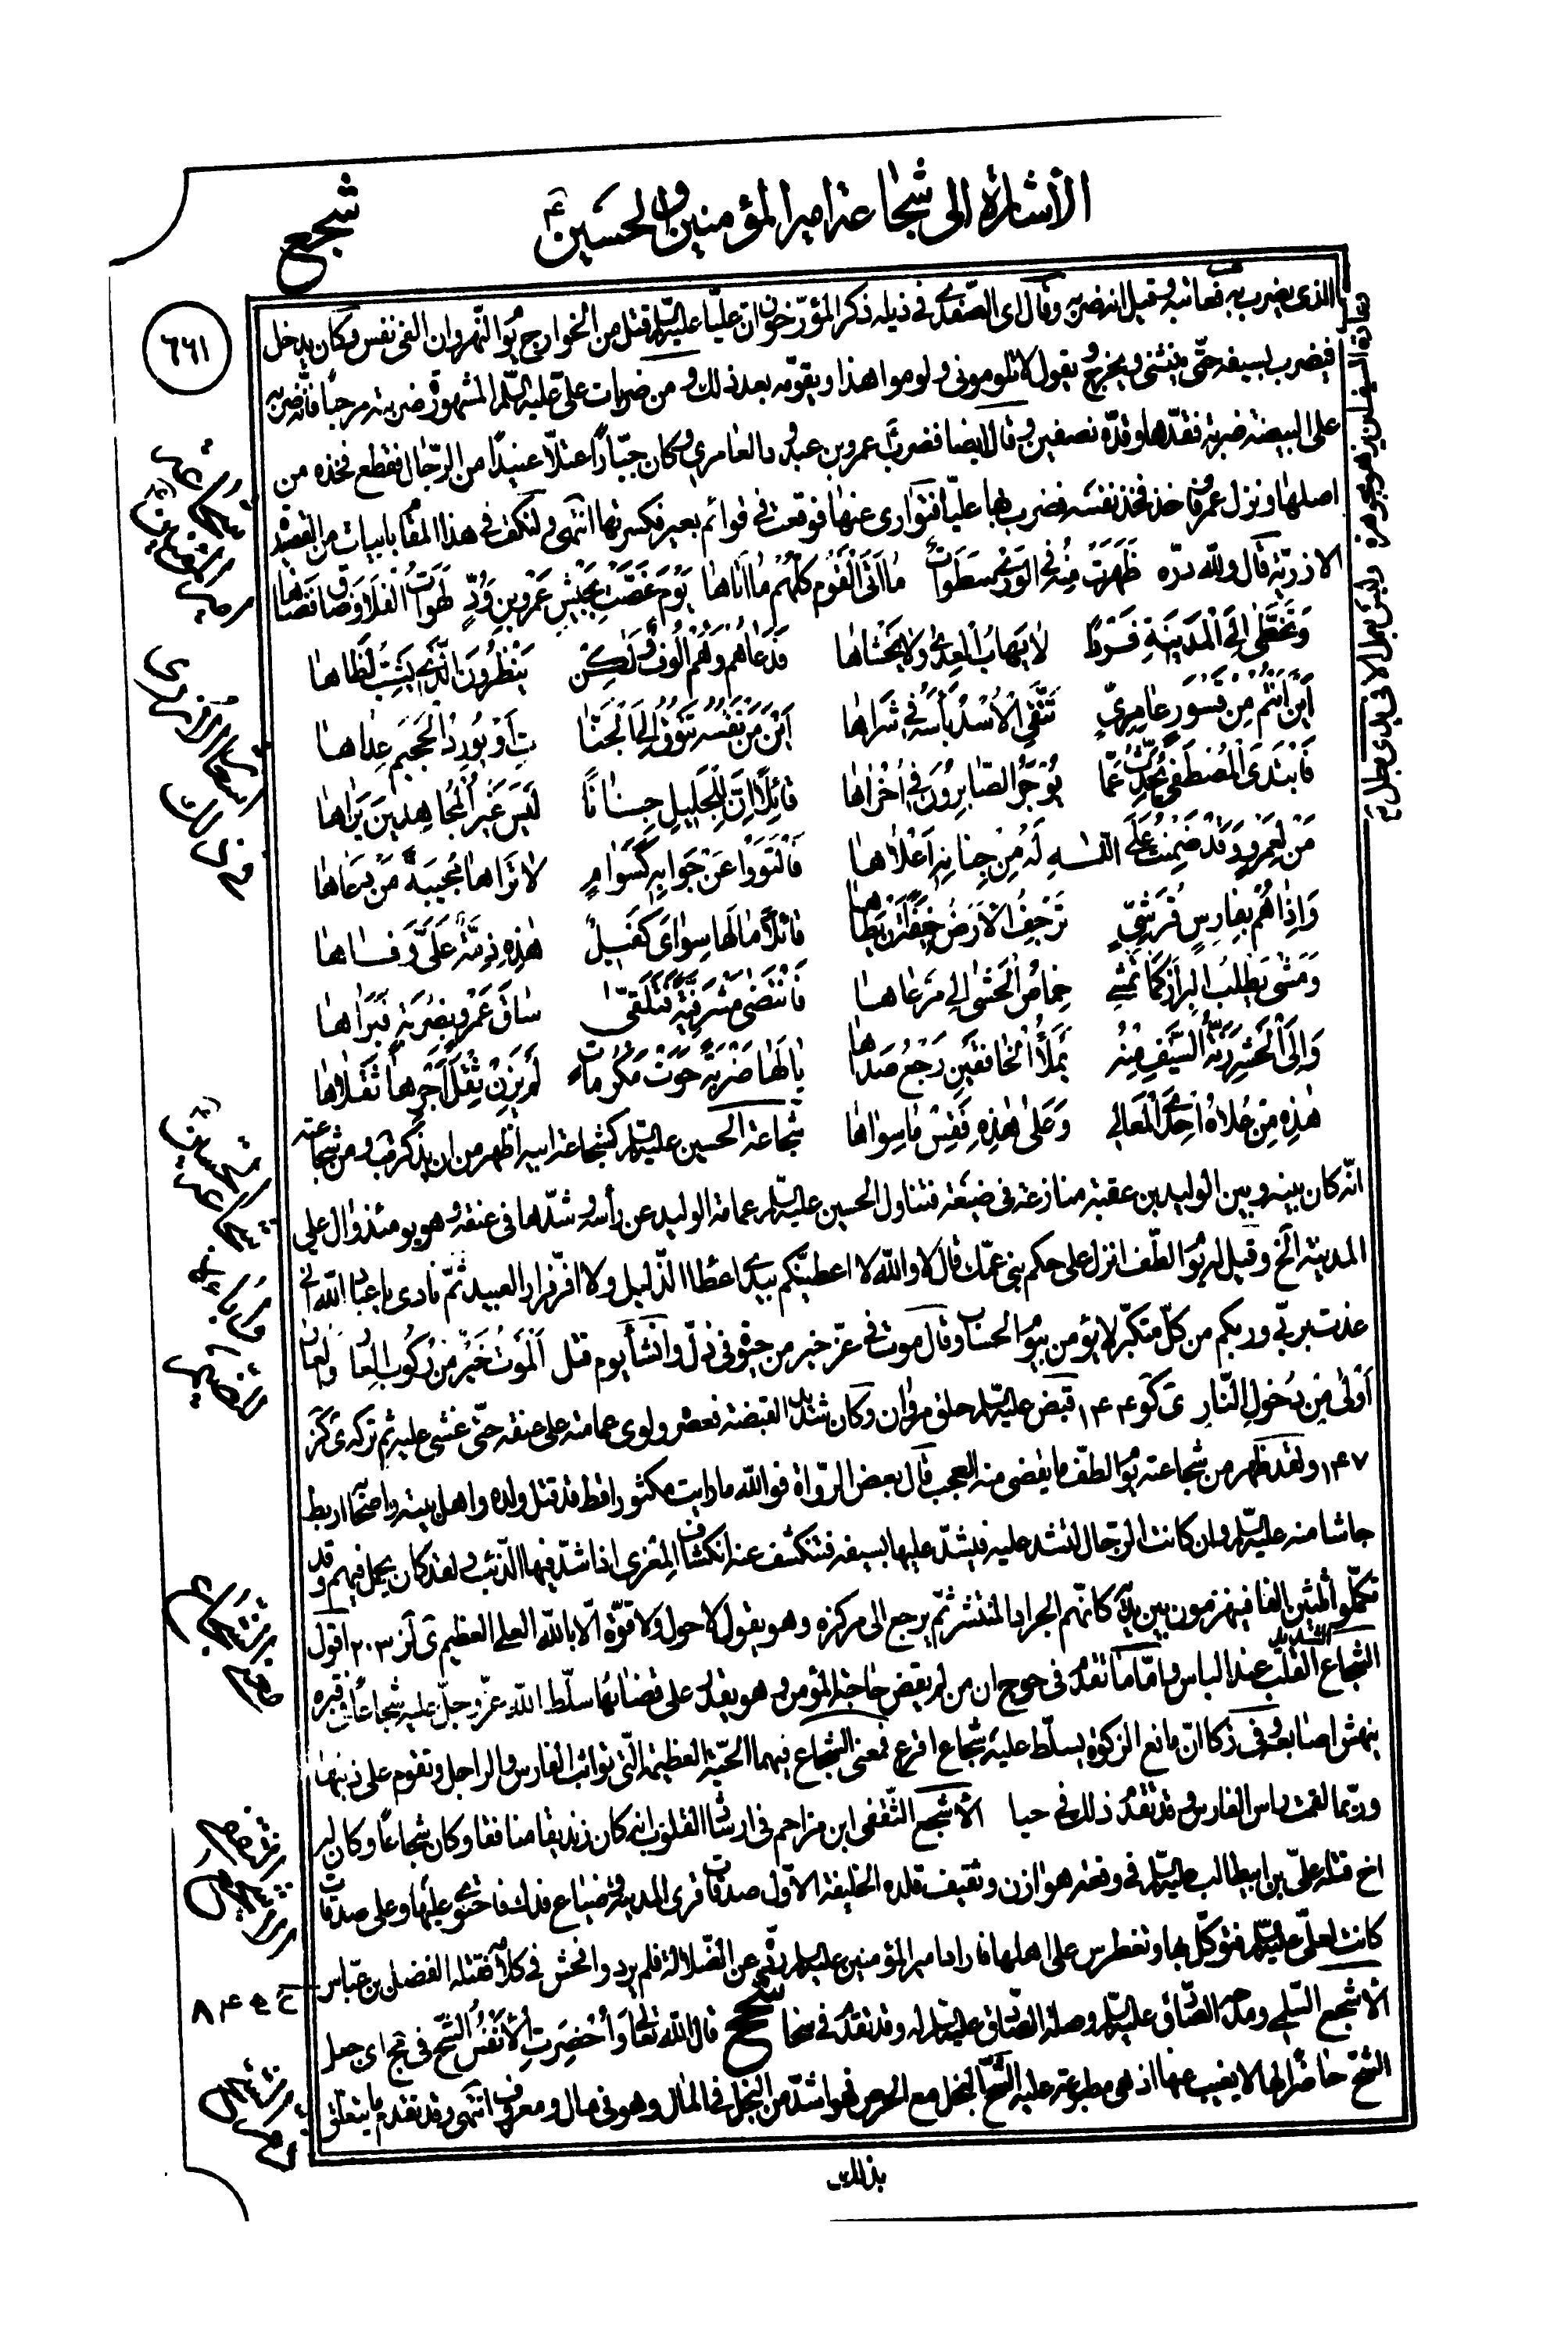 الأشارة إلى شجاعة امير المؤمنين والحسين ع
شجع
٦٦١
الذى يضرب به فعاتبه وقيل انه ضربه وقال اى الصفدى فى ذيله ذكر المؤرّخون ان عليّا عليه السلم قتل من الخوارج يوم النهروان الفى نفس وكان يدخل
فيضرب بسيفه حتّى ينثنى ويخرج ويقول لا تلومونى ولوموا هذا ويقوّمه بعد ذلك ومن ضربات علىّ عليه السّلم المشهورة ضربته مرحبا فانّه ضربه
على البيضة ضربة فقدّها وقدّه نصفين وقال ايضا فضرب عمرو بن عبد ود العامرى وكان جبّاراً عتلّا عنيدًا من الرّجال فقطع فخذه من
اصلها ونزل عمرو فاخذ فخذ نفسه فضرب بها عليّا فتوارى عنها فوقعت فى قوائم بعير فكسرتها انتهى ولنكف فى هذا المقام بابيات من القصيدة
الازريّة قال ولله درّه ظَهَرَتْ مِنْهُ فى الْوَرى سَطَواتٌ مٰا اَتَى الْقَوْمُ كُلُّهُمْ مٰا اَتٰاهٰا يَوْمَ غَصَّتْ بِجَيْشِ عَمْرِو بنِ وُدٍّ لَهَواتُ الْفَلا وَضٰاقَ فَضٰاهٰا
وَتَخَطّٰى اِلَى الْمَدينَةِ فَرْدًا لٰا يَهٰابُ الْعِدٰى وَلٰا يَخْشٰاهٰا فَدَعٰاهُمْ وَهُمْ اُلُوفٌ وَلٰكِنْ يَنْظُرُونَ الَّذى يَشِبُّ لَظٰاهٰا
اَيْنَ اَنْتُمْ مِنْ قَسْوَرٍ عٰامِرِىٍّ تَتَّقى الْاُسْدُ بَأْسَهُ فى شَرٰاهٰا اَيْنَ مَنْ نَفْسُهُ تَتُوقُ اِلَى الْجَنّٰا تِ اَوْ يُورِدُ الْجَحيمَ عِدٰاهٰا
فَابْتَدَى الْمُصْطَفٰى يُحَدِّثُ عَمّٰا يُوجَرُ الصّٰابِرُونَ فى اُخْرٰاهٰا قٰائِلًا اِنَّ لِلْجَليلِ جِنٰانًا لَيْسَ غَيْرُ الْمُجٰاهِدينَ يَرٰاهٰا
مَنْ لِعَمْرٍو وَقَدْ ضَمِنْتُ عَلَى اللّٰهِ لَهُ مِنْ جِنٰانِهِ اَعْلٰاهٰا فَالْتَوَوْا عَنْ جَوٰابِهِ كَسَوٰامٍ لٰا تَرٰاهٰا مُجيبَةً مَنْ دَعٰاهٰا
وَاِذٰا هُمْ بِفٰارِسٍ قُرَشِىٍّ تَرْجُفُ الْاَرْضُ خيفَةً اَنْ يَطٰاهٰا قٰائِلًا مٰا لَهٰا سِوٰاىَ كَفيلٌ هٰذِهِ ذِمَّةٌ عَلَىَّ وَفٰاهٰا
وَمَشٰى يَطْلُبُ الْبِرٰازَ كَمٰا تَمْشى خِمٰاصُ الْحَشٰى اِلٰى مَرْعٰاهٰا فَانْتَضٰى مَشْرَفِيَّةً فَتَلَقّٰى سٰاقَ عَمْرٍو بِضَرْبَةٍ فَبَرٰاهٰا
وَاِلَى الْحَشْرِ رَنَّةُ السَّيْفِ مِنْهُ يَمْلَأُ الْخٰافِقَيْنِ رَجْعُ صَدٰاهٰا يٰا لَهٰا ضَرْبَةً حَوَتْ مَكْرُمٰاتٍ لَمْ يَزِنْ ثِقْلَ اَجْرِهٰا ثَقَلٰاهٰا
هٰذِهِ مِنْ عُلٰاهُ اِحْدَى الْمَعٰالى وَعَلٰى هٰذِهِ فَقِسْ مٰا سِوٰاهٰا شجاعة الحسين عليه السلم كشجاعة ابيه اظهر من ان يذكر فب ومن شجاعته
انّه كان بينه وبين الوليد بن عقبة منازعة فى ضيعة فتناول الحسين عليه السلم عمامة الوليد عن رأسه وشدّها فى عنقه وهو يومئذ وال على
المدينة الخ وقيل له يوم الطّف انزل على حكم بنى عمّك قال لا والله لا اعطيتكم بيدى اعطاء الذّليل ولا افرّ فرار العبيد ثمّ نادى يا عباد الله انى
عذت بربّى وربكم من كلّ متكبّر لا يؤمن بيوم الحساب وقال موت فى عزّ خير من حيوة فى ذلّ وانشأ يوم قتل اَلْمَوْتُ خَيْرٌ مِنْ رُكُوبِ الْعارِ وَالْعارُ
اَوْلٰى مِنْ دُخُولِ النّٰارِ ى كو ١٤٤ قبض عليه السلم حلق مروان وكان شديد القبضة فعصره ولوى عمامته على عنقه حتّى غشى عليه ثم تركه ى كز
١٤٧ ولقد ظهر من شجاعته يوم الطّف ما يقضى منه العجب قال بعض الرّواة فوالله ما رايت مكثورا قط قد قتل ولده واهل بيته واصحابه اربط
جاشا منه عليه السلم وان كانت الرّجال لتشد عليه فيشدّ عليها بسيفه فتنكشف عنه انكشاف المعزى اذا شدّ فيها الذّئب ولقد كان يحمل فيهم وقد
تكمّلوا ثلثين الفا فينهزمون بين يديه كانّهم الجراد المنتشر ثمّ يرجع الى مركزه وهو يقول لا حول ولا قوّة الّا بالله العلى العظيم ى لز ٢٠٣ اقول
الشّجاع الشديد القلب عند الباس وامّا ما تقدّم فى حوج ان من لم يقض حاجة المؤمن وهو يقدر على قضائها سلّط الله عزّ وجلّ عليه شجاعًا فى قبره
ينهش اصابعه وفى ذكا انّ مانع الزكوة يسلّط عليه شجاع اقرع فمعنى الشّجاع فيهما الحيّة العظيمة الّتى تواثب الفارس والراجل وتقوم على ذنبها
وربّما لقمت راس الفارس وقد تقدّم ذلك فى حيا الأشجع الثّقفى ابن مزاحم فى ارشاد القلوب انه كان زنديقا منافقا وكان شجاعًا وكان له
اخ قتله علىّ بن ابيطالب عليه السلم فى وقعة هوازن وثقيف قلده الخليفة الاوّل صدقات قرى المدينة وضياع فدك فاحتوى عليها وعلى صدقات
كانت لعلىّ عليه السلم فتوكّل بها وتغطرس على اهلها فاراد امير المؤمنين عليه السلم ردّه عن الضّلالة فلم يرد وافحش فى كلامه فقتله الفضل بن عبّاس
الاشجع السّلمى ومدحه الصّادق عليه السّلم وصلة الصّادق عليه السلم له وقد تقدّم فى سخا شحح قال الله تعالى وَاُحْضِرَتِ الْاَنْفُسُ الشُّحَّ فى مج اى جعل
الشّحّ حاضرا لها لا يغيب عنها اذ هى مطبوعة عليه الشّحّ البخل مع الحرص فهو اشدّ من البخل فى المال وهو فى مال ومعروف انتهى وقد تقدم ما يتعلّق
بذلك